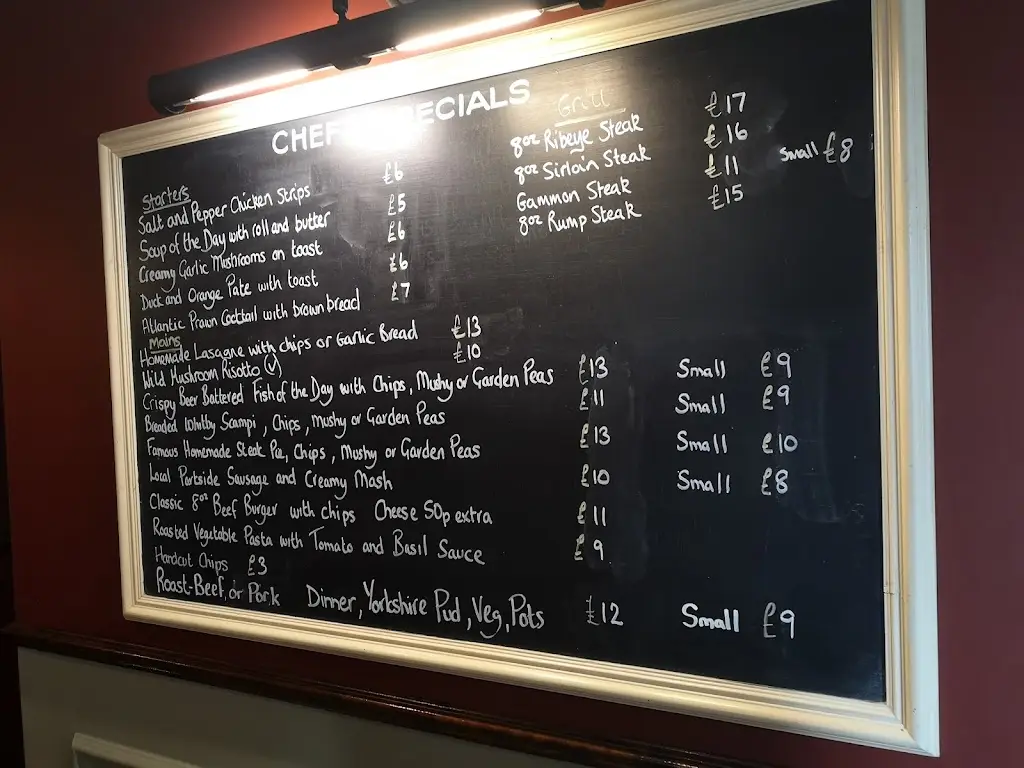 CHEF'S SPECIALS
Starters
Salt and Pepper Chicken Strips £6
Soup of the Day with roll and butter £5
Creamy Garlic Mushrooms on toast £6
Duck and Orange Pate with toast £6
Atlantic Prawn Cocktail with brown bread £7
Mains
Homemade Lasagne with chips or Garlic Bread £13
Wild Mushroom Risotto (v) £10
Crispy Beer Battered Fish of the Day with Chips, Mushy or Garden Peas £13 Small £9
Breaded Whitby Scampi, Chips, Mushy or Garden Peas £11 Small £9
Famous Homemade Steak Pie, Chips, Mushy or Garden Peas £13 Small £10
Local Partside Sausage and Creamy Mash £10 Small £8
Classic 8oz Beef Burger with chips Cheese 50p extra £11
Roasted Vegetable Pasta with Tomato and Basil Sauce £9
Handcut Chips £3
Roast-Beef, or Pork Dinner, Yorkshire Pud, Veg, Pots £12 Small £9
Grill
8oz Ribeye Steak £17
8oz Sirloin Steak £16
Gammon Steak £11 Small £8
8oz Rump Steak £15